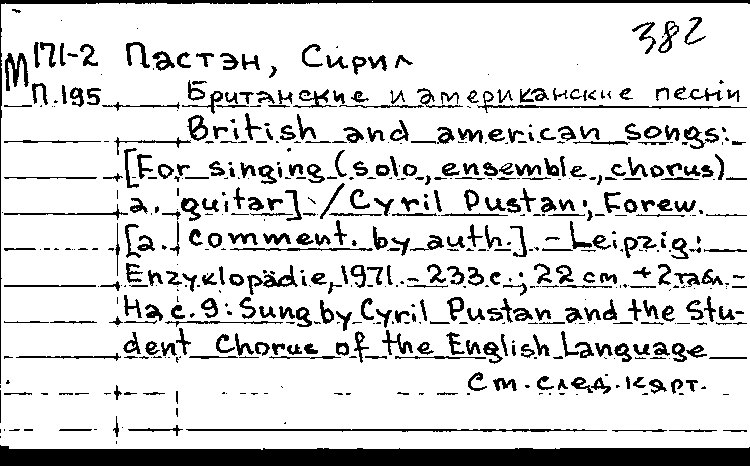 382
М 171-2 Пастэн, Сирил
П.195 Британские и американские песни
British and american songs:
[For singing (solo, ensemble, chorus)
a. guitar] / Cyril Pustan; Forew.
[a. comment. by auth.]. - Leipzig:
Enzyklopädie, 1971. - 233 с.; 22 cm + 2 табл. -
На с. 9: Sung by Cyril Pustan and the Stu-
dent Chorus of the English Language
См. след. карт.